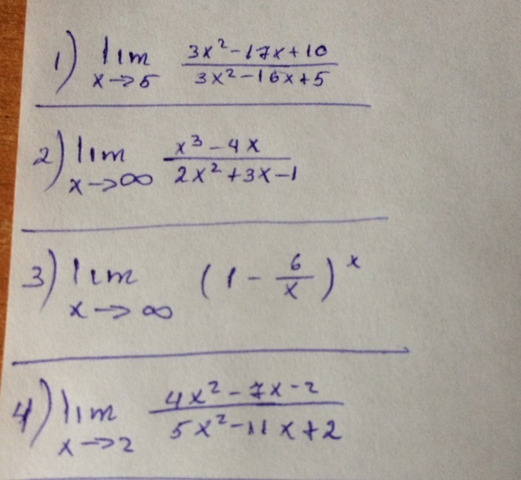 1) lim x→5 (3x²-17x+10)/(3x²-16x+5)
2) lim x→∞ (x³-4x)/(2x²+3x-1)
3) lim x→∞ (1 - 6/x)ˣ
4) lim x→2 (4x²-7x-2)/(5x²-11x+2)